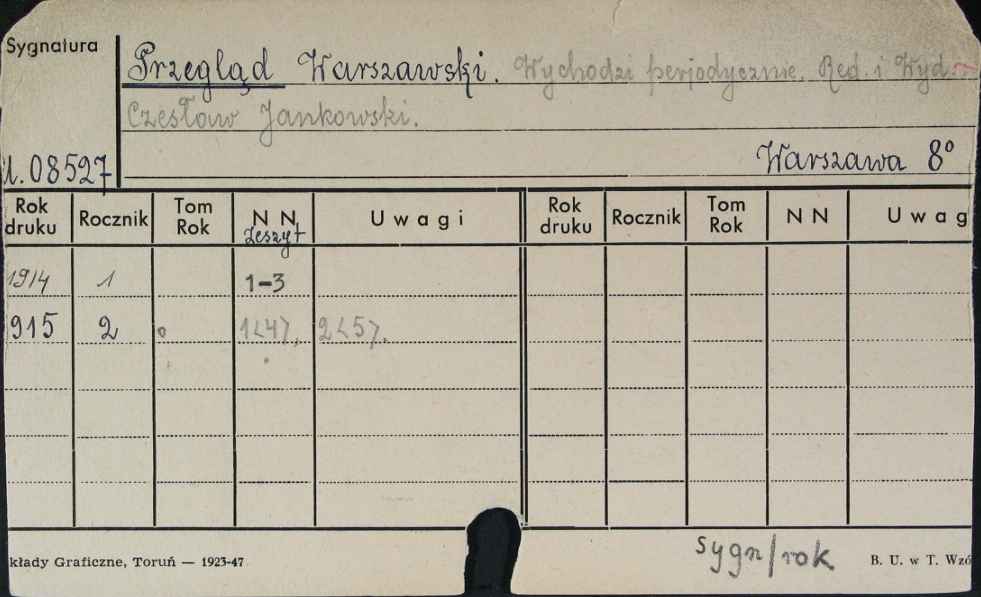 Sygnatura
Przegląd Warszawski. Wychodzi perjodycznie. Red. i Wyd.
Czesław Jankowski.
08527
Warszawa 8°
Rok druku Rocznik Tom Rok N N Zeszyt Uwagi Rok druku Rocznik Tom Rok N N Uwag
1914 1 1-3
915 2 1<4>, 2<5>.
sygn/rok
kłady Graficzne, Toruń — 1923-47 B. U. w T. Wzó